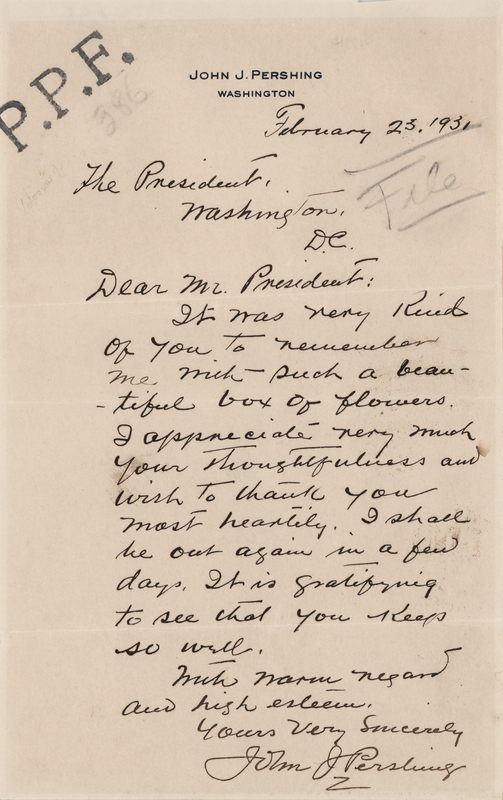 P.P.F.
386
JOHN J. PERSHING
WASHINGTON
February 23, 1931
The President,
Washington,
D.C.
File
Dear Mr. President:
It was very kind
of you to remember
me with such a beau-
-tiful box of flowers.
I appreciate very much
your thoughtfulness and
wish to thank you
most heartily. I shall
be out again in a few
days. It is gratifying
to see that you keep
so well.
With warm regard
and high esteem.
Yours Very Sincerely
John J Pershing